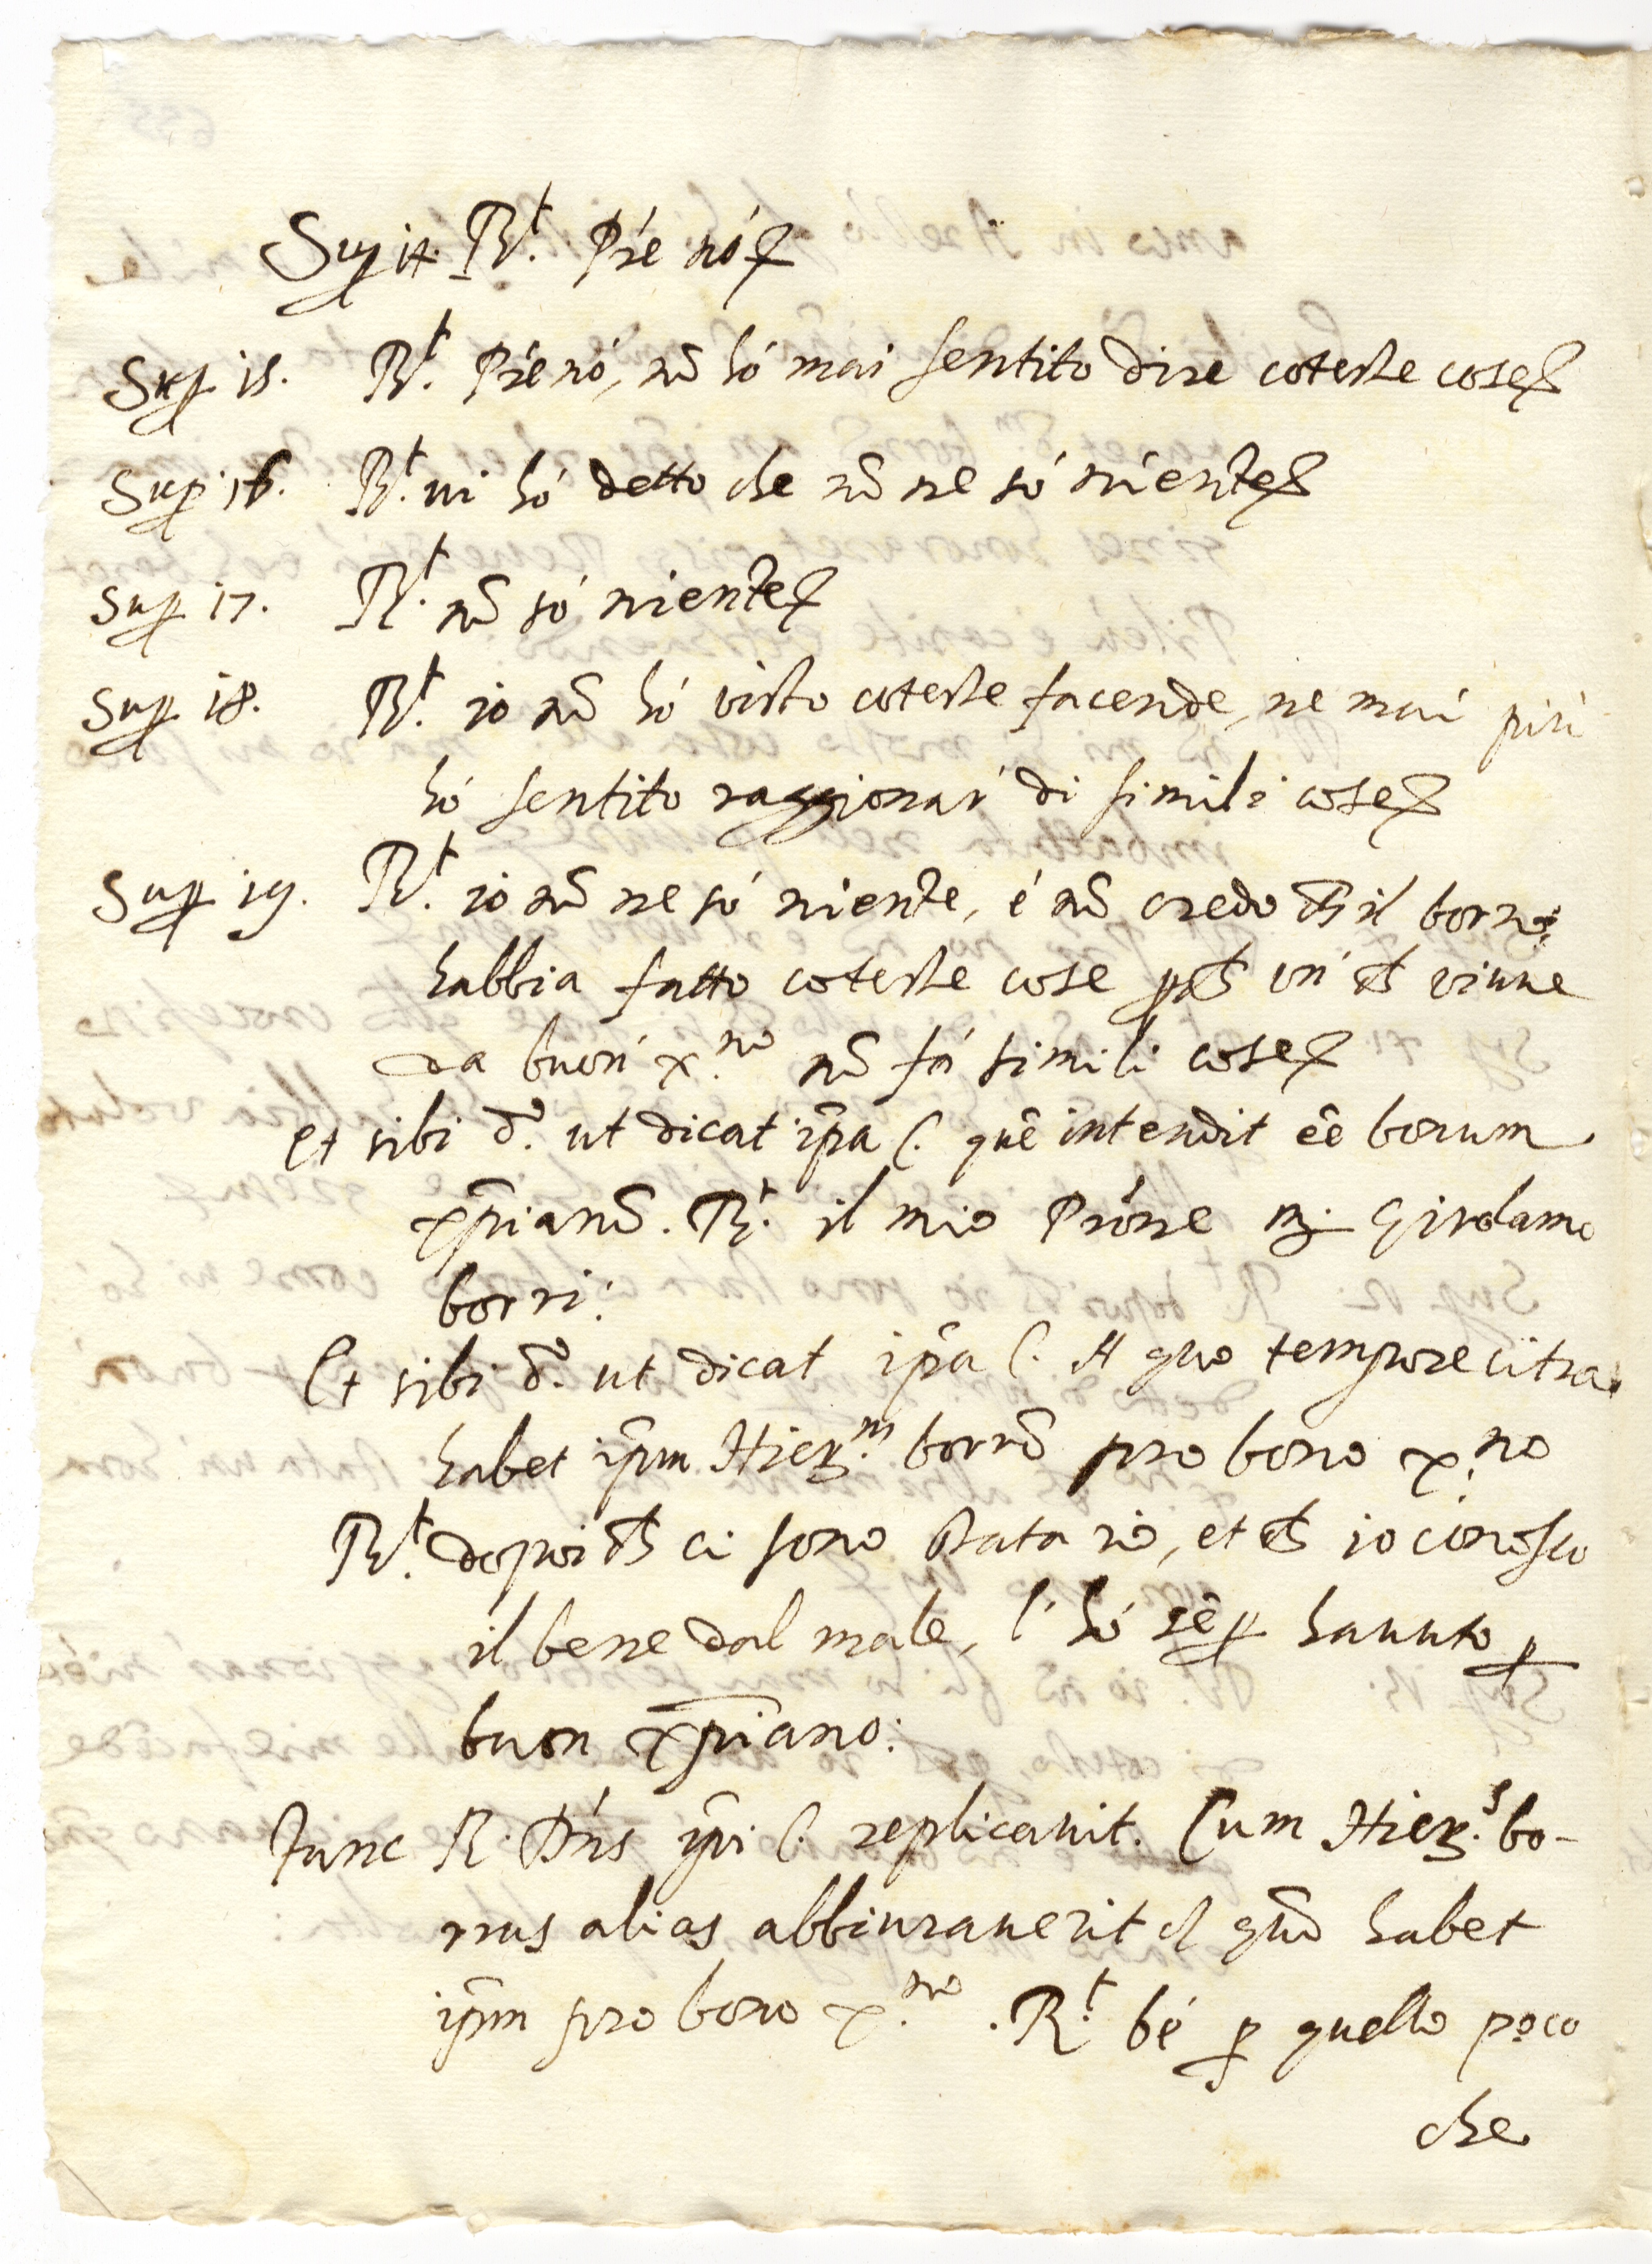 Sup 14. Rt. Pre nó
Sup 15. Rt. Pre nó, nō hó mai sentito dire coteste cose
Sup 16. Rt. ui hó detto che nō ne só niente
Sup 17. Rt. nō só niente
Sup 18. Rt. io nō hó visto coteste facende, ne mai più
hó sentito raggionar' di simili cose
Sup 19. Rt. io nō ne só niente, é nō credo ch il borro
habbia fatto coteste cose pch un' ch viuue
da buon' x.no nō fá simili cose
Et sibi d. ut dicat ipā C. quē intendit eē bonum
xpianū. Rt. il mio Prōne m. Girolamo
borri:
Et sibi d. ut dicat ipā C. A quo tempore citra
habet ipm Hier.m borrū pro bono x.no
Rt. dopoi ch ci sono stata io, et ch io conosco
il bene dal male, l' hó sēp hauuto p
buon xpiano:
Tunc R. Dns ipi C. replicauit. Cum Hier.s bo-
rrus alias abbiurauerit qūo habet
ipm pro bono x.no. Rt. bé p quello poco
che